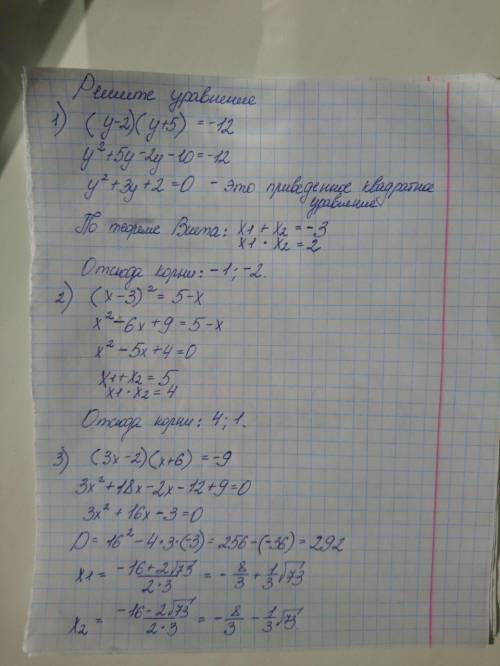 Решите уравнение
1) (y-2)(y+5) = -12
y²+5y-2y-10=-12
y²+3y+2=0 - это приведенное квадратное
уравнение
По теореме Виета: x1 + x2 = -3
x1 · x2 = 2
Отсюда корни: -1; -2.
2) (x-3)² = 5-x
x²-6x+9=5-x
x²-5x+4=0
x1+x2=5
x1·x2=4
Отсюда корни: 4; 1.
3) (3x-2)(x+6) = -9
3x²+18x-2x-12+9=0
3x²+16x-3=0
D=16²-4·3·(-3)=256-(-36)=292
x1 = (-16+2√73)/(2·3) = -8/3 + 1/3 √73
x2 = (-16-2√73)/(2·3) = -8/3 - 1/3 √73